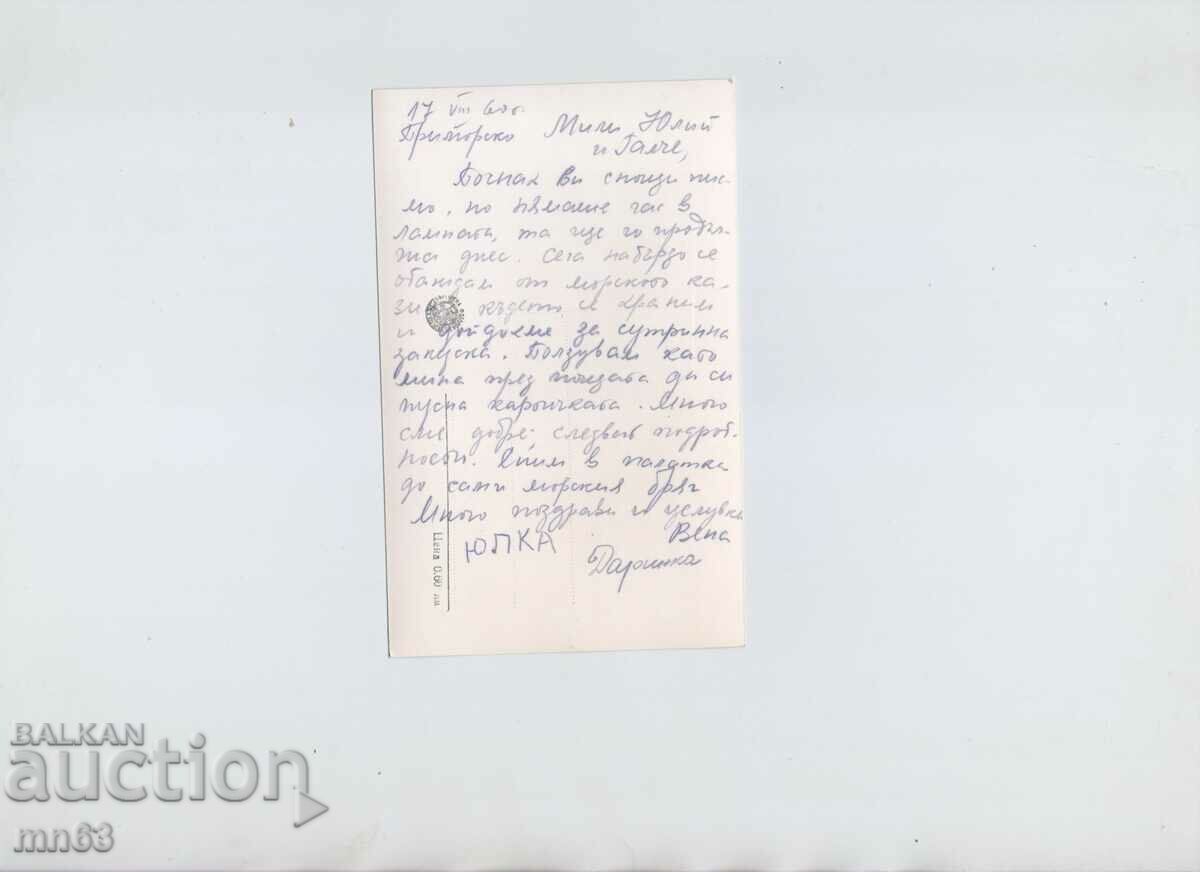 17 VIII 60г.
Приморско Мили Юлий
и Галче,
Почнах Ви снощи пис
мо, но нямаше газ в
лампата, та ще го продъл-
жа днес. Сега набързо се
обаждам от морското ка-
зи където се храним
и дойдохме за сутринна
закуска. Ползувам като
мина през пощата да си
пусна картичката. Много
сме добре, следват подроб-
ности. Спим в палатка
до сами морския бряг
Много поздрави и целувки
Вена
ЮЛКА
Даринка
Цена 0.60 лв
BALKAN
auction
mn63